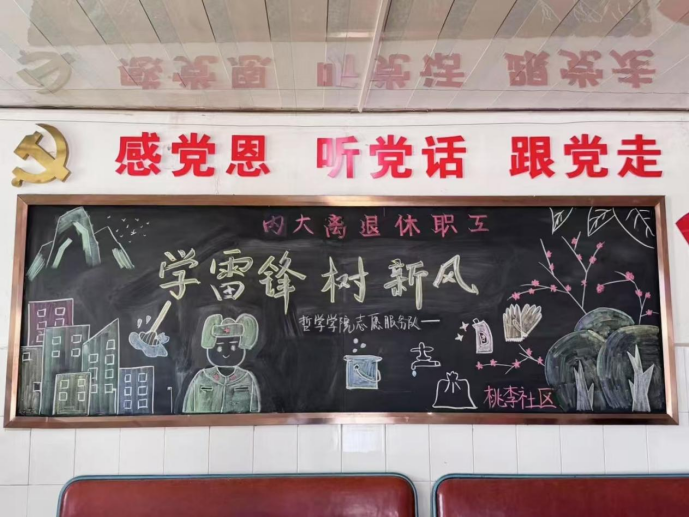 感党恩 听党话 跟党走
内大离退休职工
学雷锋 树新风
哲学学院志愿服务队
桃李社区